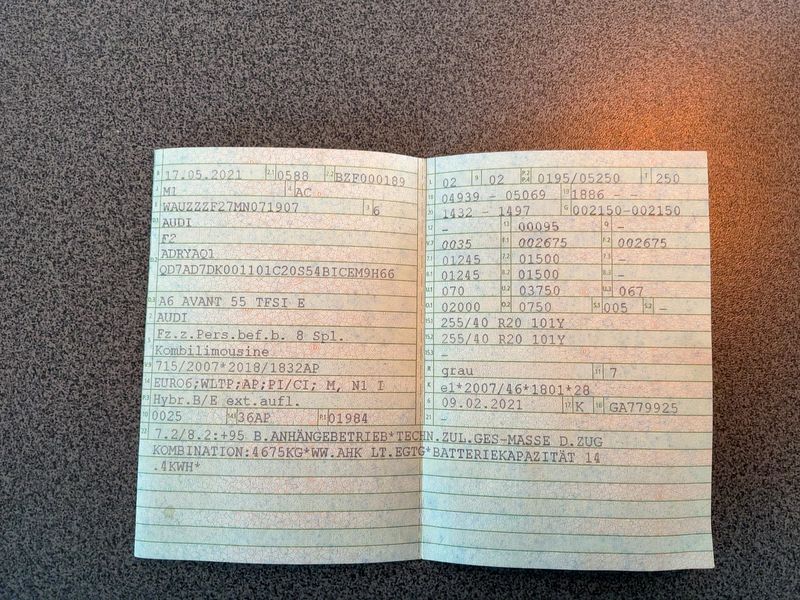 B 17.05.2021 2.1 0588 2.2 BZF000189
J M1 4 AC
E WAUZZZF27MN071907 3 6
D.1 AUDI
F2
D.2 ADRYAQ1
QD7AD7DK001101C20S54BICEM9H66
D.3 A6 AVANT 55 TFSI E
2 AUDI
5 Fz.z.Pers.bef.b. 8 Spl.
Kombilimousine
V.9 715/2007*2018/1832AP
14 EURO6;WLTP;AP;PI/CI; M, N1 I
P.3 Hybr.B/E ext.aufl.
10 0025 14.1 36AP P.1 01984
L 02 9 02 P.2 P.4 0195/05250 T 250
18 04939 - 05069 19 1886 - -
20 1432 - 1497 G 002150-002150
12 - 13 00095 Q -
V.7 0035 F.1 002675 F.2 002675
7.1 01245 7.2 01500 7.3 -
8.1 01245 8.2 01500 8.3 -
U.1 070 U.2 03750 U.3 067
O.1 02000 O.2 0750 S.1 005 S.2 -
15.1 255/40 R20 101Y
15.2 255/40 R20 101Y
15.3 -
R grau 11 7
K e1*2007/46*1801*28
6 09.02.2021 17 K 16 GA779925
21 -
22 7.2/8.2:+95 B.ANHÄNGEBETRIEB*TECHN.ZUL.GES-MASSE D.ZUG
KOMBINATION:4675KG*WW.AHK LT.EGTG*BATTERIEKAPAZITÄT 14
.4KWH*